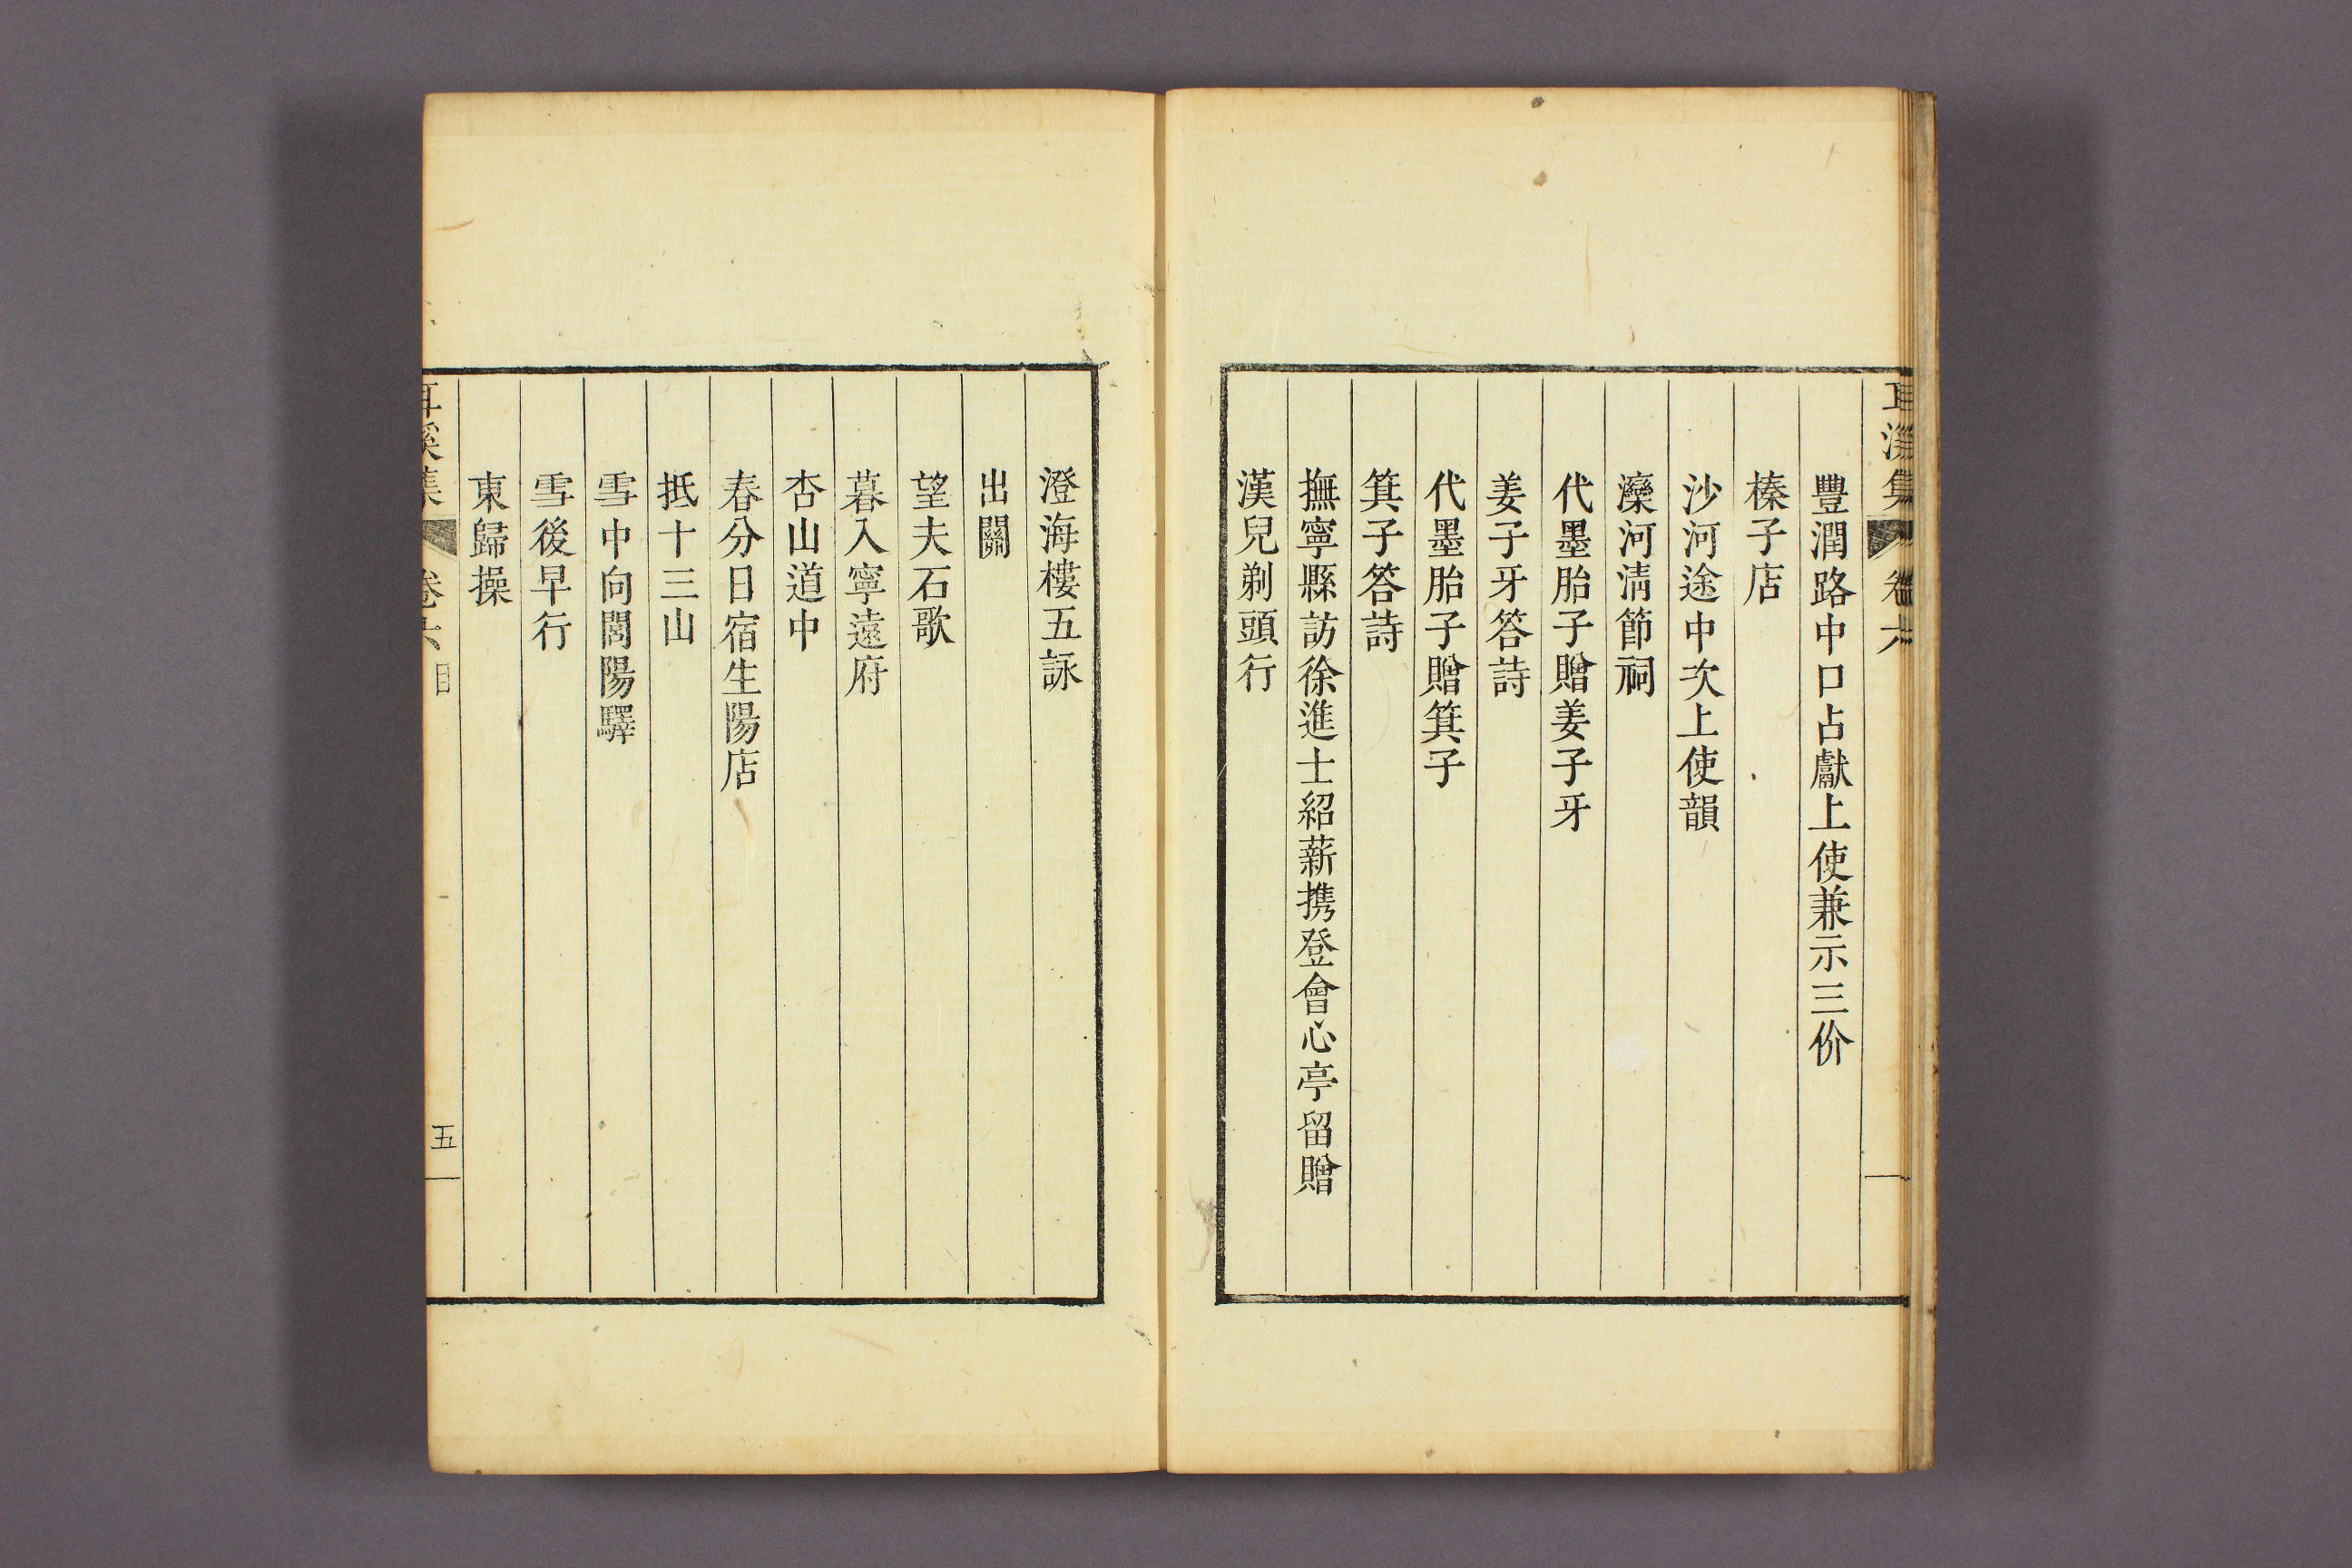 豐潤路中口占獻上使兼示三价
榛子店
沙河途中次上使韻
灤河清節祠
代墨胎子贈姜子牙
姜子牙答詩
代墨胎子贈箕子
箕子答詩
撫寧縣訪徐進士紹薪携登會心亭留贈
漢兒剃頭行
澄海樓五詠
出關
望夫石歌
暮入寧遠府
杏山道中
春分日宿生陽店
抵十三山
雪中向閭陽驛
雪後早行
東歸操
耳溪集 卷六 目 五